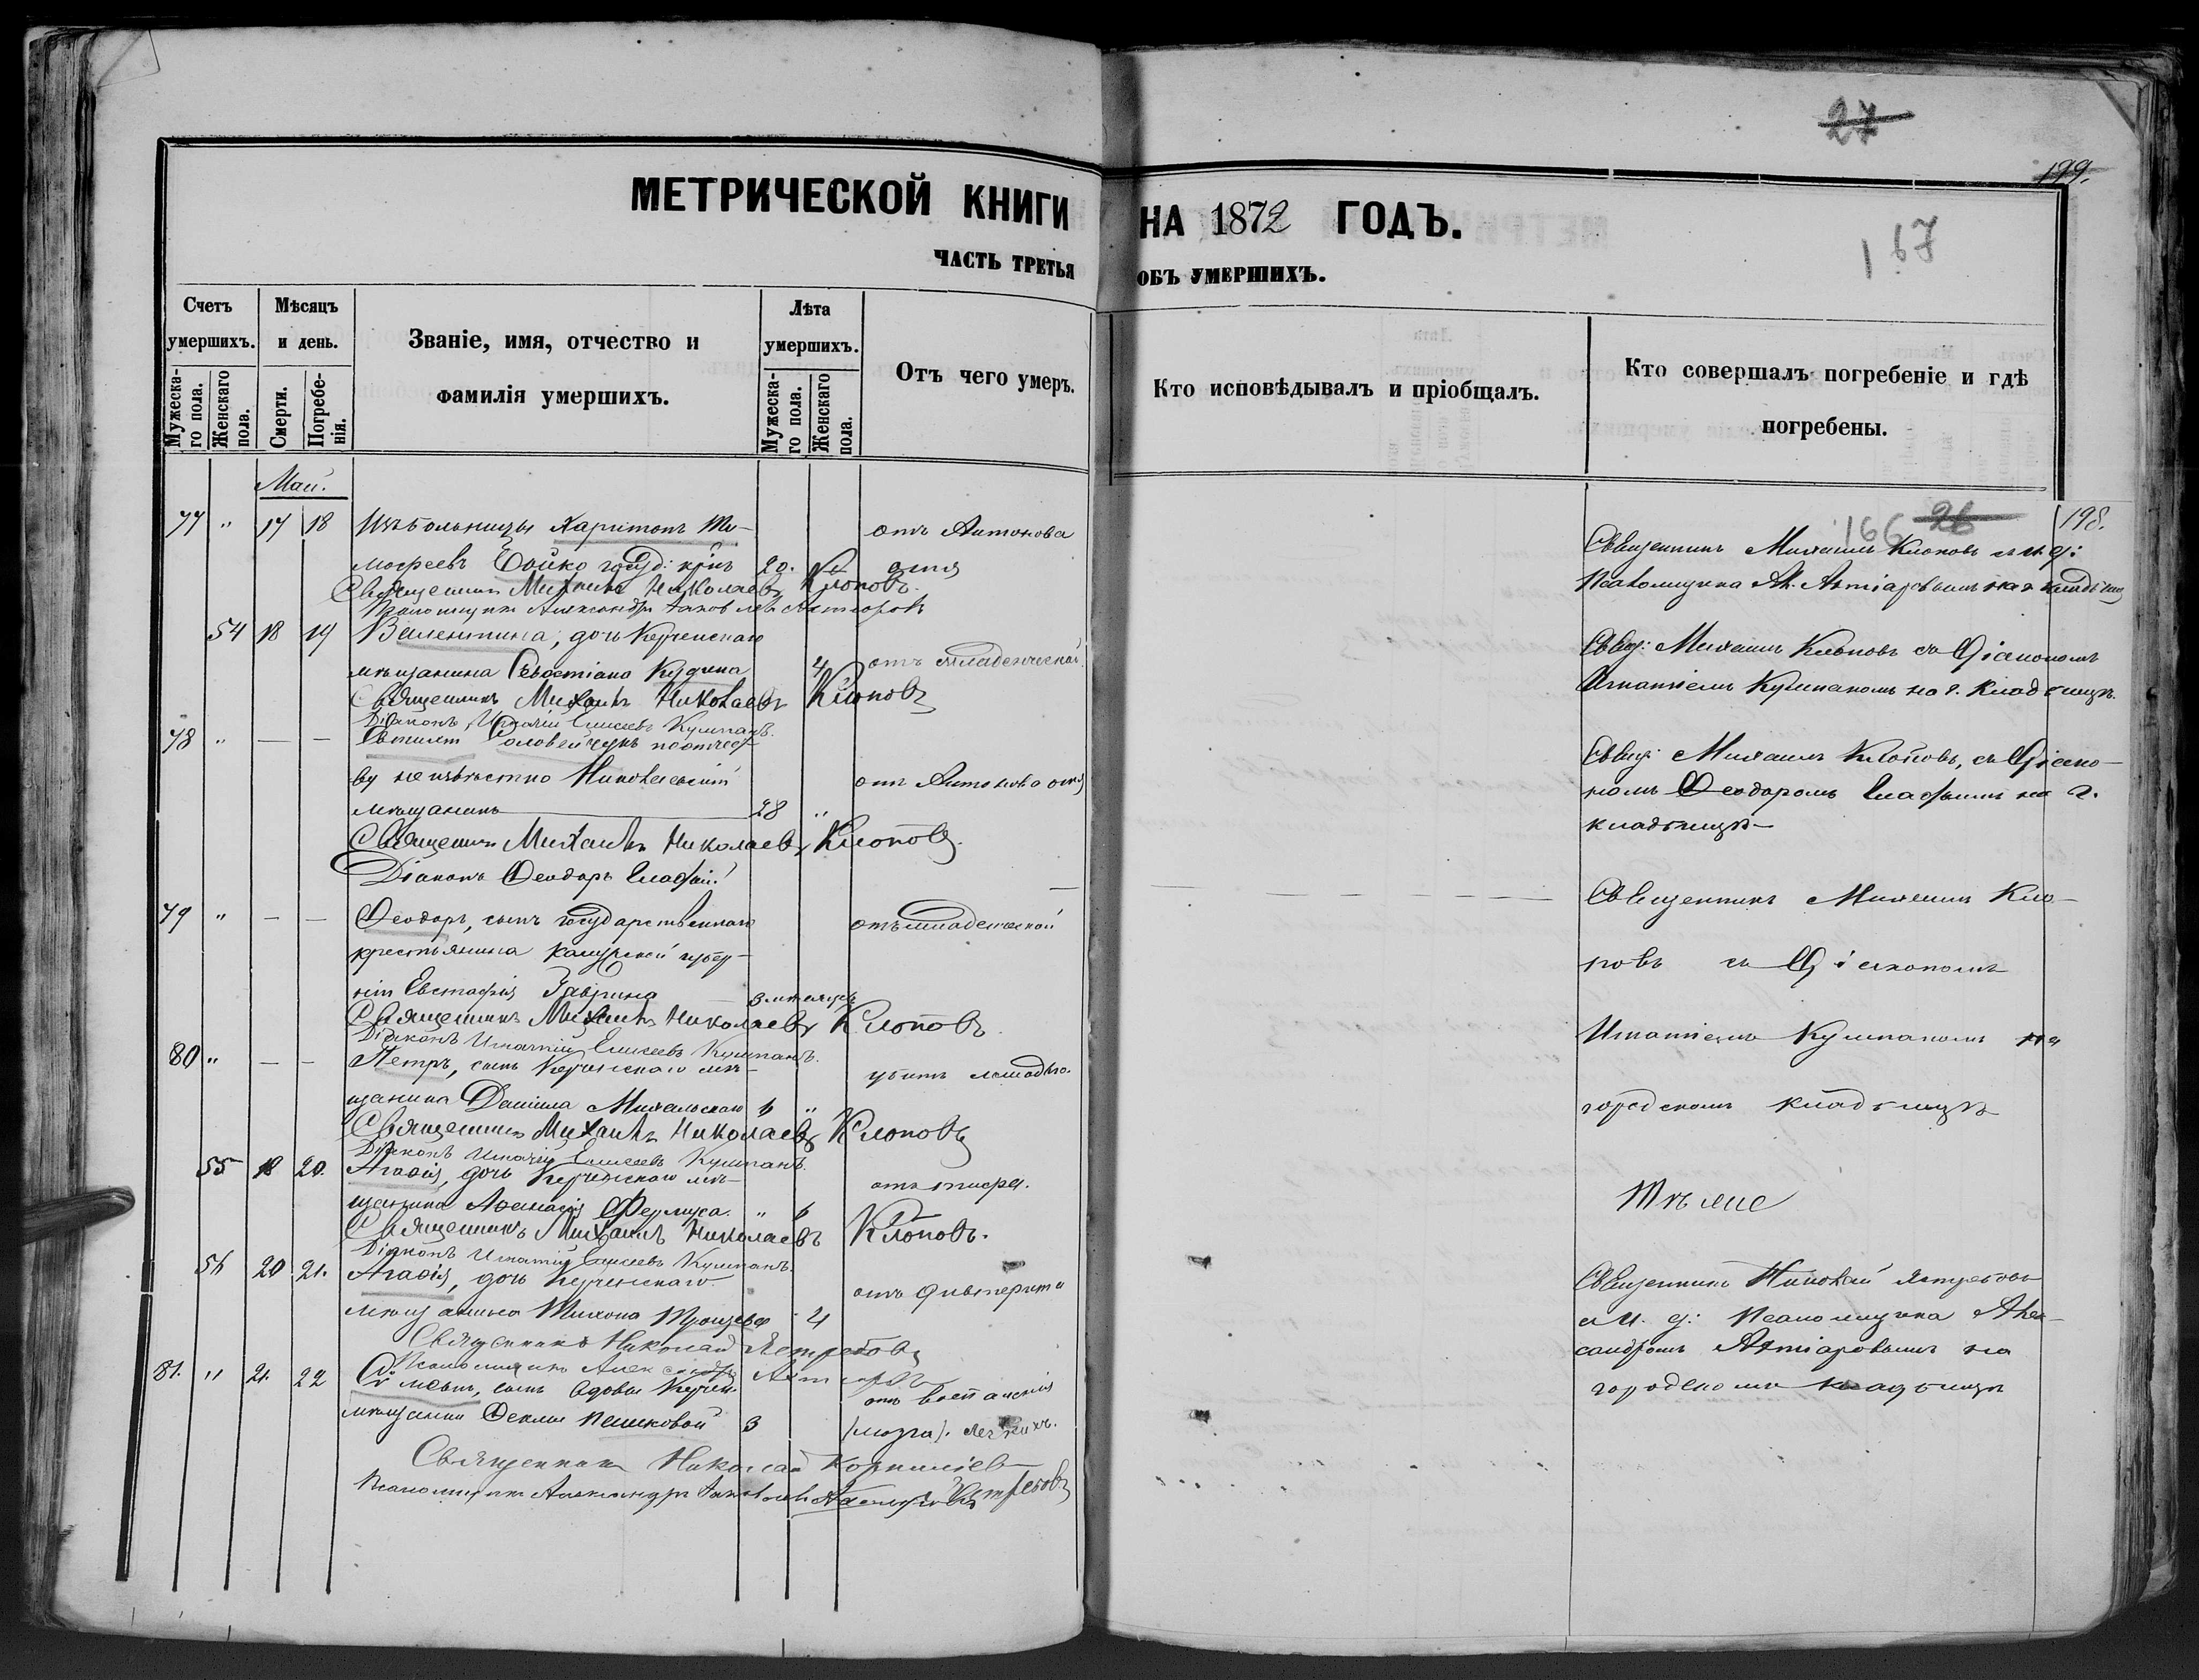 27
199.
МЕТРИЧЕСКОЙ КНИГИ НА 1872 ГОДЪ.
167
ЧАСТЬ ТРЕТЬЯ ОБЪ УМЕРШИХЪ.
Счетъ умершихъ.
Мужеска-го пола.
Женскаго пола.
Мѣсяцъ и день.
Смерти.
Погребе-нія.
Званіе, имя, отчество и
фамилія умершихъ.
Лѣта умершихъ.
Мужеска-го пола.
Женскаго пола.
Отъ чего умеръ.
Кто исповѣдывалъ и пріобщалъ.
Кто совершалъ погребеніе и гдѣ
погребены.
Май.
166 26 198.
77 " 17 18 Изъ больницы Харитонъ Ти- отъ Антонова
мофеевъ Бойко госуд: крнъ 20. огня
Священникъ Михаилъ Николаевъ Клоповъ.
Псаломщикъ Александръ Яковлевъ
Священникъ Михаилъ Клоповъ с и. д:
Псаломщика Ал. Ахтіаровымъ на г. кладбищѣ
54 18 19 Валентина, дочь Керченскаго
мѣщанина Севостіана Кудина 4 отъ младенческой
Священникъ Михаилъ Николаевъ Клоповъ
Діаконъ Игнатій Елисеевъ Кумпанъ.
Свящ: Михаилъ Клоповъ съ Діакономъ
Игнатіемъ Кумпаномъ на г. Кладбищѣ.
78 " — — Соловейчукъ по отчест-
ву неизвѣстно Николаевскій отъ Антонова огня
мѣщанинъ 28 "
Священникъ Михаилъ Николаевъ Клоповъ.
Діаконъ Ѳеодоръ
Свящ: Михаилъ Клоповъ, съ Діако-
номъ Ѳеодоромъ на г.
кладбищѣ—
79 " — — Ѳеодоръ, сынъ государственнаго отъ младенческой
крестьянина Калужской губер-
ніи Евстафія Гаврина 3 мѣсяцъ
Священникъ Михаилъ Николаевъ Клоповъ.
Діаконъ Игнатій Елисеевъ Кумпанъ.
Священникъ Михаилъ Кло-
повъ съ Діакономъ
Игнатіемъ Кумпаномъ на
городскомъ кладбищѣ
80 " — — Петръ, сынъ Керченскаго мѣ- убитъ лошадью.
щанина Даніила Михальскаго 6 "
Священникъ Михаилъ Николаевъ Клоповъ
Діаконъ Игнатій Елисеевъ Кумпанъ.
55 18 20. Агафія, дочь Керченскаго мѣ- отъ тифа.
щанина Аѳанасія " 6
Священникъ Михаилъ Николаевъ Клоповъ.
Діаконъ Игнатій Елисеевъ Кумпанъ.
Тѣ же
56 20 21. Агафія, дочь Керченскаго отъ дифтерита
мѣщанина Тихона 4
Священникъ Николай Ястребовъ
Псаломщикъ Александръ
Священникъ Николай Ястребовъ
с И. д: Псаломщика Алек-
сандромъ Ахтіаровымъ на
городскомъ кладбищѣ
81. " 21. 22 сынъ вдовы Керчен. отъ воспаленія
мѣщанки Ѳеклы Пешковой 3 (мозга).
Священникъ Николай Корниліев
Псаломщикъ Александръ Ястребовъ